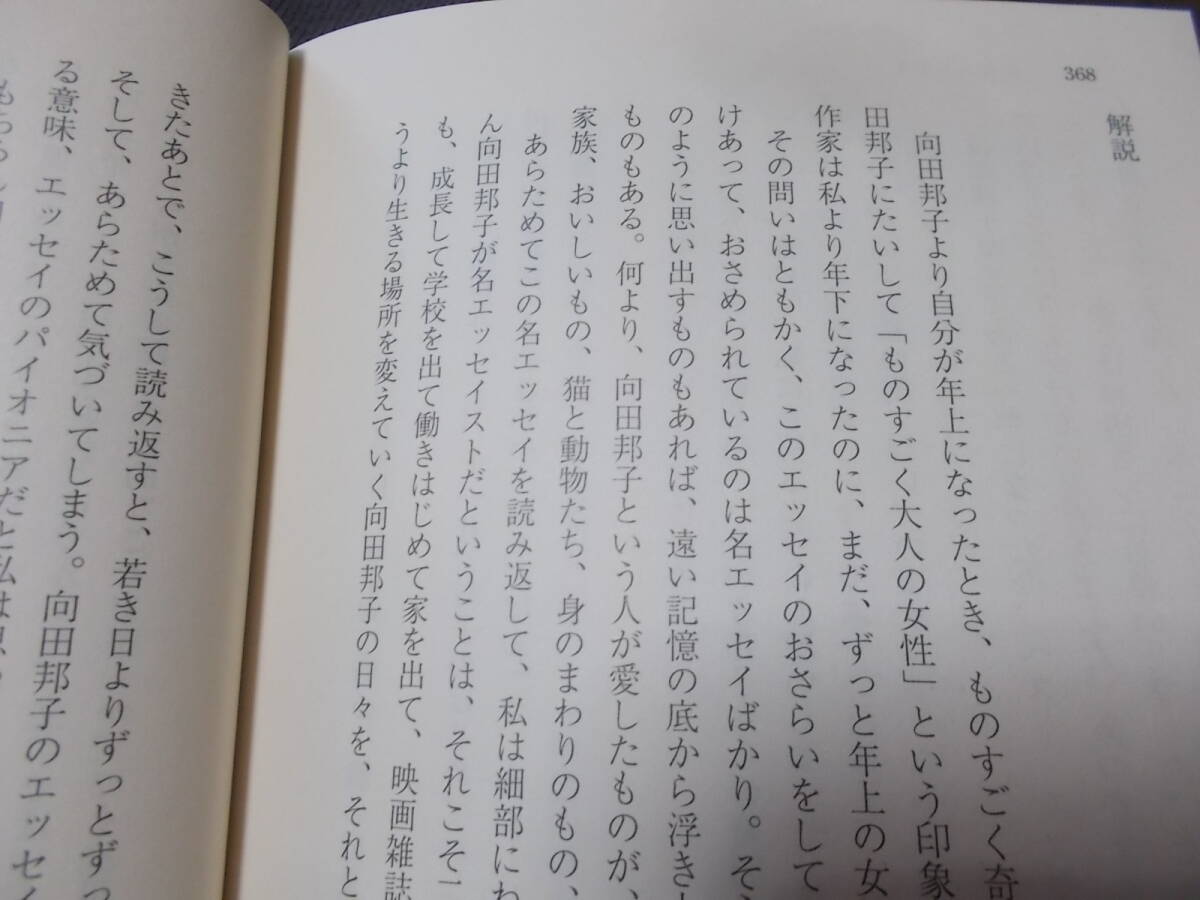 368
解説
向田邦子より自分が年上になったとき、ものすごく奇
田邦子にたいして「ものすごく大人の女性」という印象
作家は私より年下になったのに、まだ、ずっと年上の女
その問いはともかく、このエッセイのおさらいをして
けあって、おさめられているのは名エッセイばかり。そ
のように思い出すものもあれば、遠い記憶の底から浮き
ものもある。何より、向田邦子という人が愛したものが、
家族、おいしいもの、猫と動物たち、身のまわりのもの、
あらためてこの名エッセイを読み返して、私は細部にわ
ん向田邦子が名エッセイストだということは、それこそ
も、成長して学校を出て働きはじめて家を出て、映画雑誌
うより生きる場所を変えていく向田邦子の日々を、それと
きたあとで、こうして読み返すと、若き日よりずっとずっ
そして、あらためて気づいてしまう。向田邦子のエッセイ
る意味、エッセイのパイオニアだと私は思
もちろん